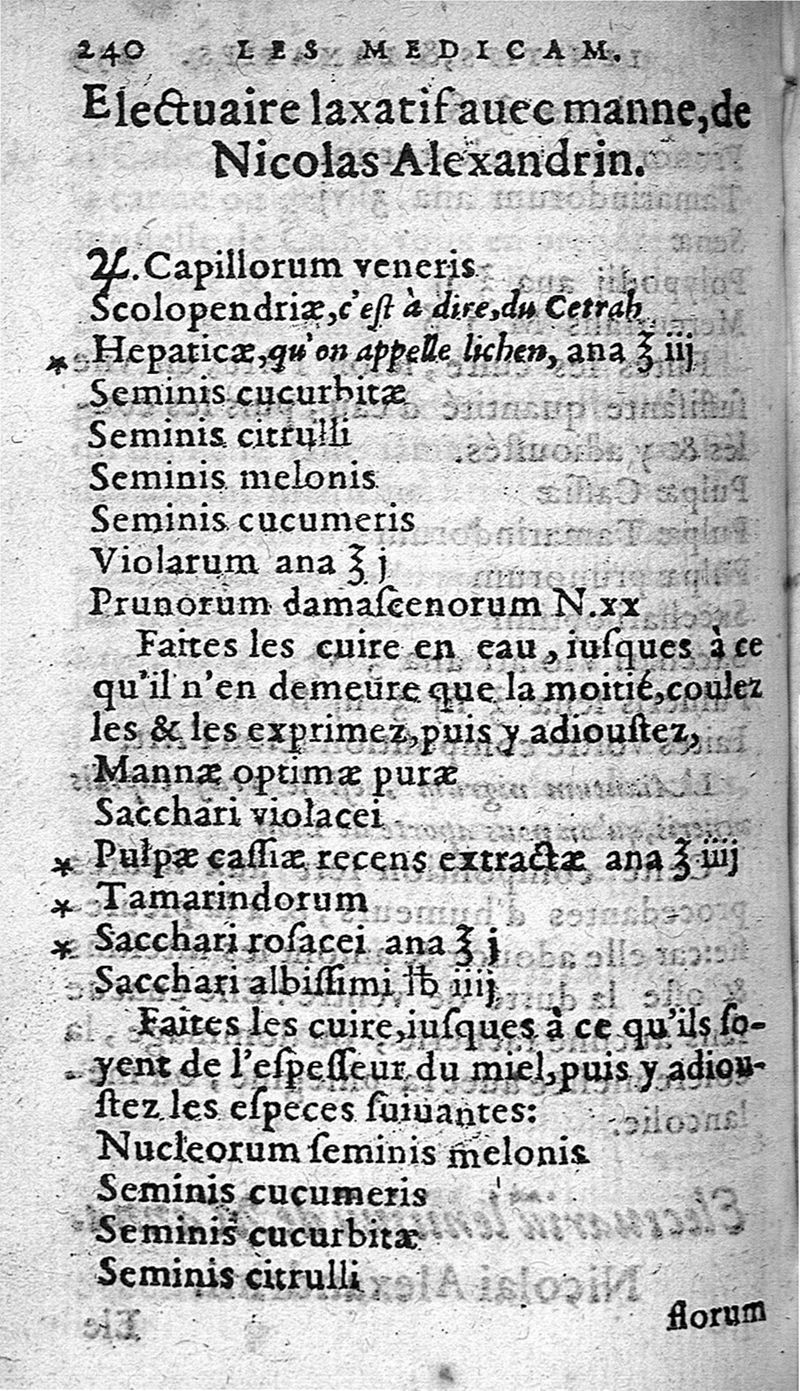 240 LES MEDICAM.
Electuaire laxatif auec manne, de
Nicolas Alexandrin.
♃. Capillorum veneris
Scolopendriæ, c'eſt à dire, du Cetrah
* Hepaticæ, qu'on appelle lichen, ana ℥ iij
Seminis cucurbitæ
Seminis citrulli
Seminis melonis
Seminis cucumeris
Violarum ana ℥ j
Prunorum damaſcenorum N.xx
Faites les cuire en eau, iuſques à ce
qu'il n'en demeure que la moitié, coulez
les & les exprimez, puis y adiouſtez,
Mannæ optimæ puræ
Sacchari violacei
* Pulpæ caſſiæ recens extractæ ana ℥ iiij
* Tamarindorum
* Sacchari roſacei ana ℥ j
Sacchari albiſſimi ℔ iiij
Faites les cuire, iuſques à ce qu'ils ſo-
yent de l'eſpeſſeur du miel, puis y adiou-
ſtez les eſpeces ſuiuantes:
Nucleorum ſeminis melonis
Seminis cucumeris
Seminis cucurbitæ
Seminis citrulli
florum